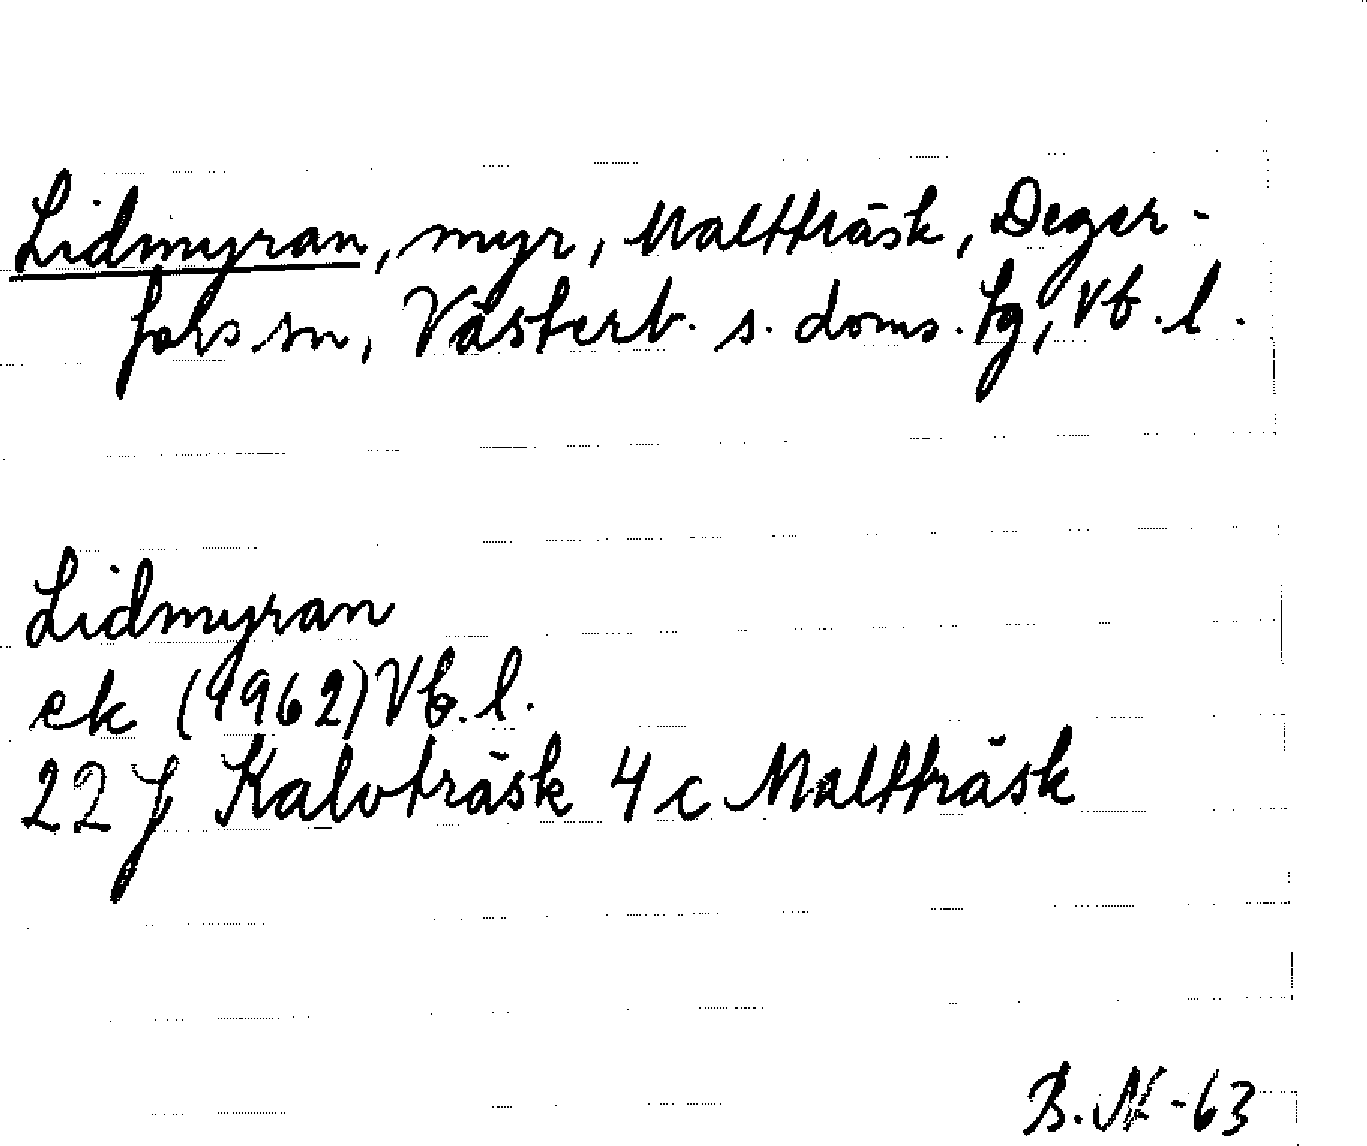 Lidmyran, myr, Maltträsk, Deger-
fors sn, Västerb. s. doms. fg, Vb. l.
Lidmyran
ek (1962) Vb. l.
22 J Kalvträsk 4 c Maltträsk
B. N -63